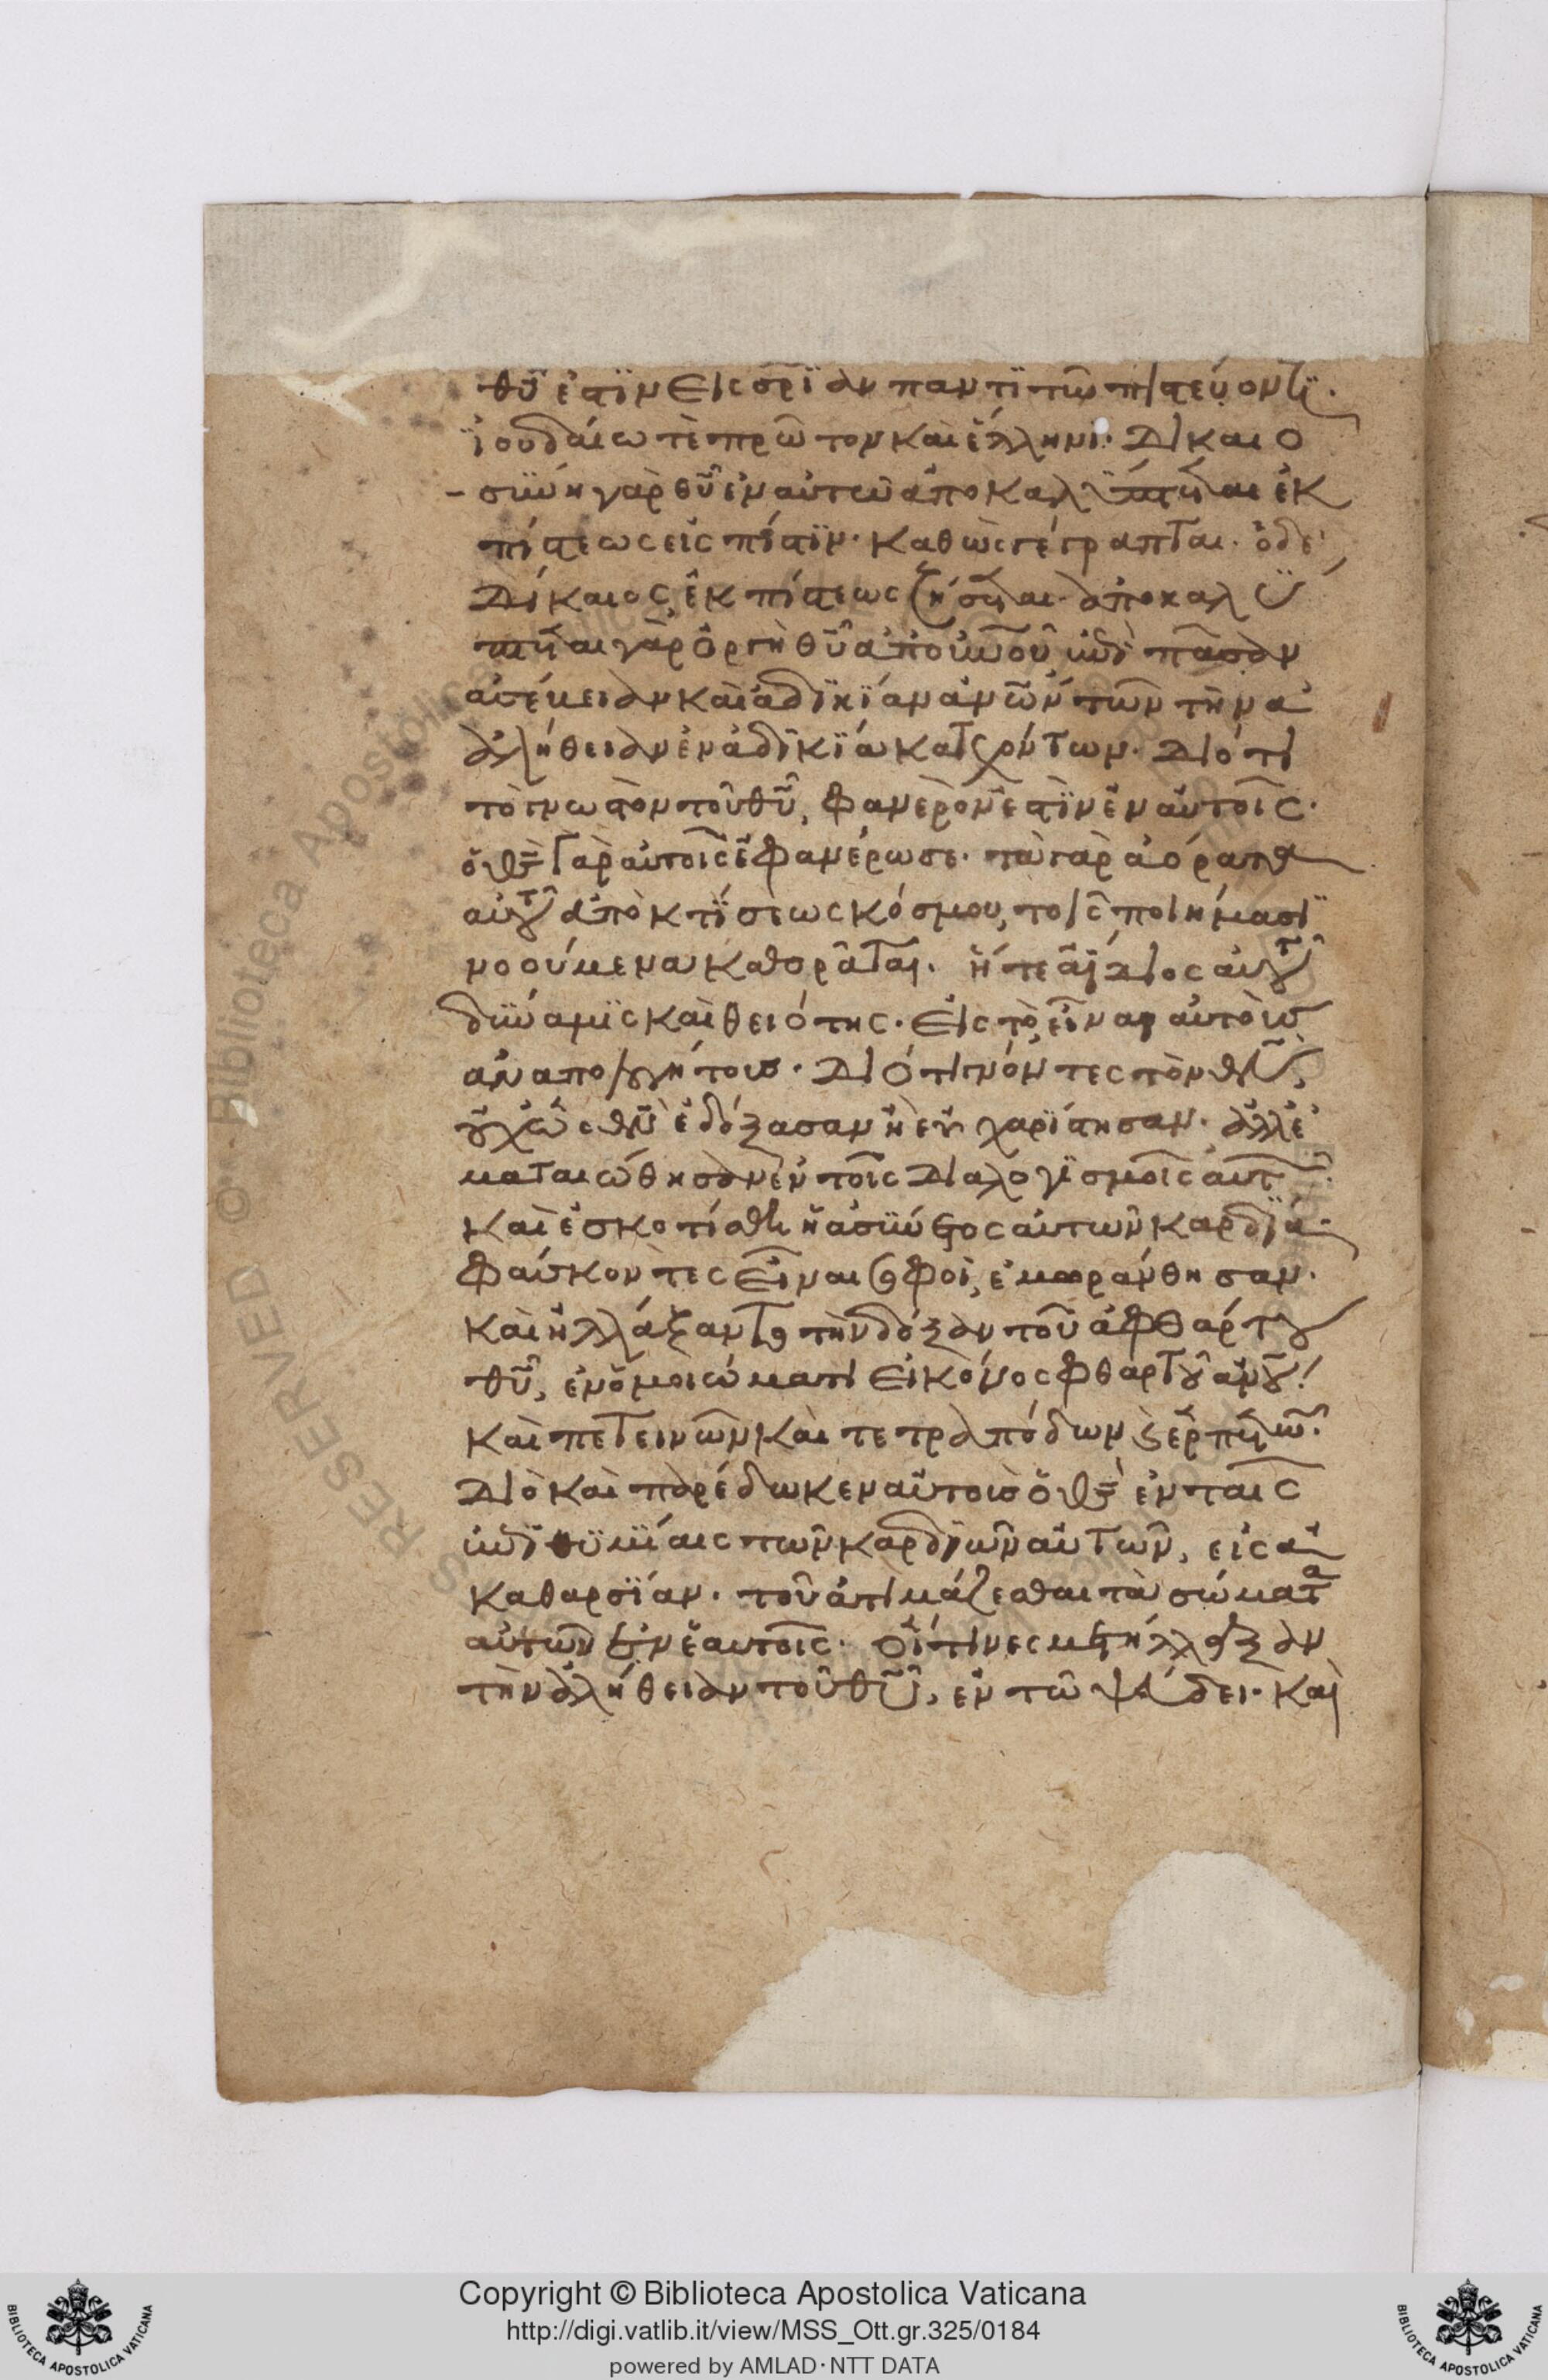 θῡ ἐστὶν εἰς σρῑαν παντὶ τῶ πιστεύοντι.
ἰουδαίω τὲ πρῶτον καὶ ἕλληνι. δικαιο
σύνη γὰρ θῡ ἐν αὐτῶ ἀποκαλύπτεται ἐκ
πίστεως εἰς πίστιν. καθὼς γέγραπται. ὁ δὲ
δίκαιος ἐκ πίστεως ζήσεται. ἀποκαλύ
πτεται γὰρ ὀργὴ θῡ ἀπ' οὐνοῦ ἐπὶ πᾶσαν
ἀσέβειαν καὶ ἀδικίαν ἀνων τῶν τὴν α
ἀλήθειαν ἐν ἀδικία κατεχόντων. διότι
τὸ γνωστὸν τοῦ θῡ, φανερόν ἐστιν ἐν αὐτοῖς.
ὁ θς γὰρ αὐτοῖς ἐφανέρωσε. τὰ γὰρ ἀόρατα
αὐτοῦ ἀπὸ κτίσεως κόσμου, τοῖς ποιήμασι
νοούμενα καθορᾶται. ἥ τε ἀΐδιος αὐτοῦ
δύναμις καὶ θειότης. εἰς τὸ εἶναι αὐτοὺς
ἀναπολογήτους. διότι γνόντες τὸν θν,
οὐχ ὡς θν ἐδόξασαν ἢ εὐχαρίστησαν. ἀλλ' ἐ
ματαιώθησαν ἐν τοῖς διαλογισμοῖς αὐτῶν.
καὶ ἐσκοτίσθη ἡ ἀσύνετος αὐτῶν καρδία.
φάσκοντες εἶναι σοφοὶ, ἐμωράνθησαν.
καὶ ἠλλάξαντο τὴν δόξαν τοῦ ἀφθάρτου
θῡ, ἐν ὁμοιώματι εἰκόνος φθαρτοῦ ἀνου
καὶ πετεινῶν καὶ τετραπόδων καὶ ἑρπετῶν.
διὸ καὶ παρέδωκεν αὐτοὺς ὁ θς ἐν ταῖς
ἐπιθυμίαις τῶν καρδιῶν αὐτῶν, εἰς ἀ
καθαρσίαν. τοῦ ἀτιμάζεσθαι τὰ σώματα
αὐτῶν ἐν ἑαυτοῖς. οἵτινες μετήλλαξαν
τὴν ἀλήθειαν τοῦ θῡ, ἐν τῶ ψεύδει. καὶ
Copyright © Biblioteca Apostolica Vaticana
http://digi.vatlib.it/view/MSS_Ott.gr.325/0184
powered by AMLAD·NTT DATA